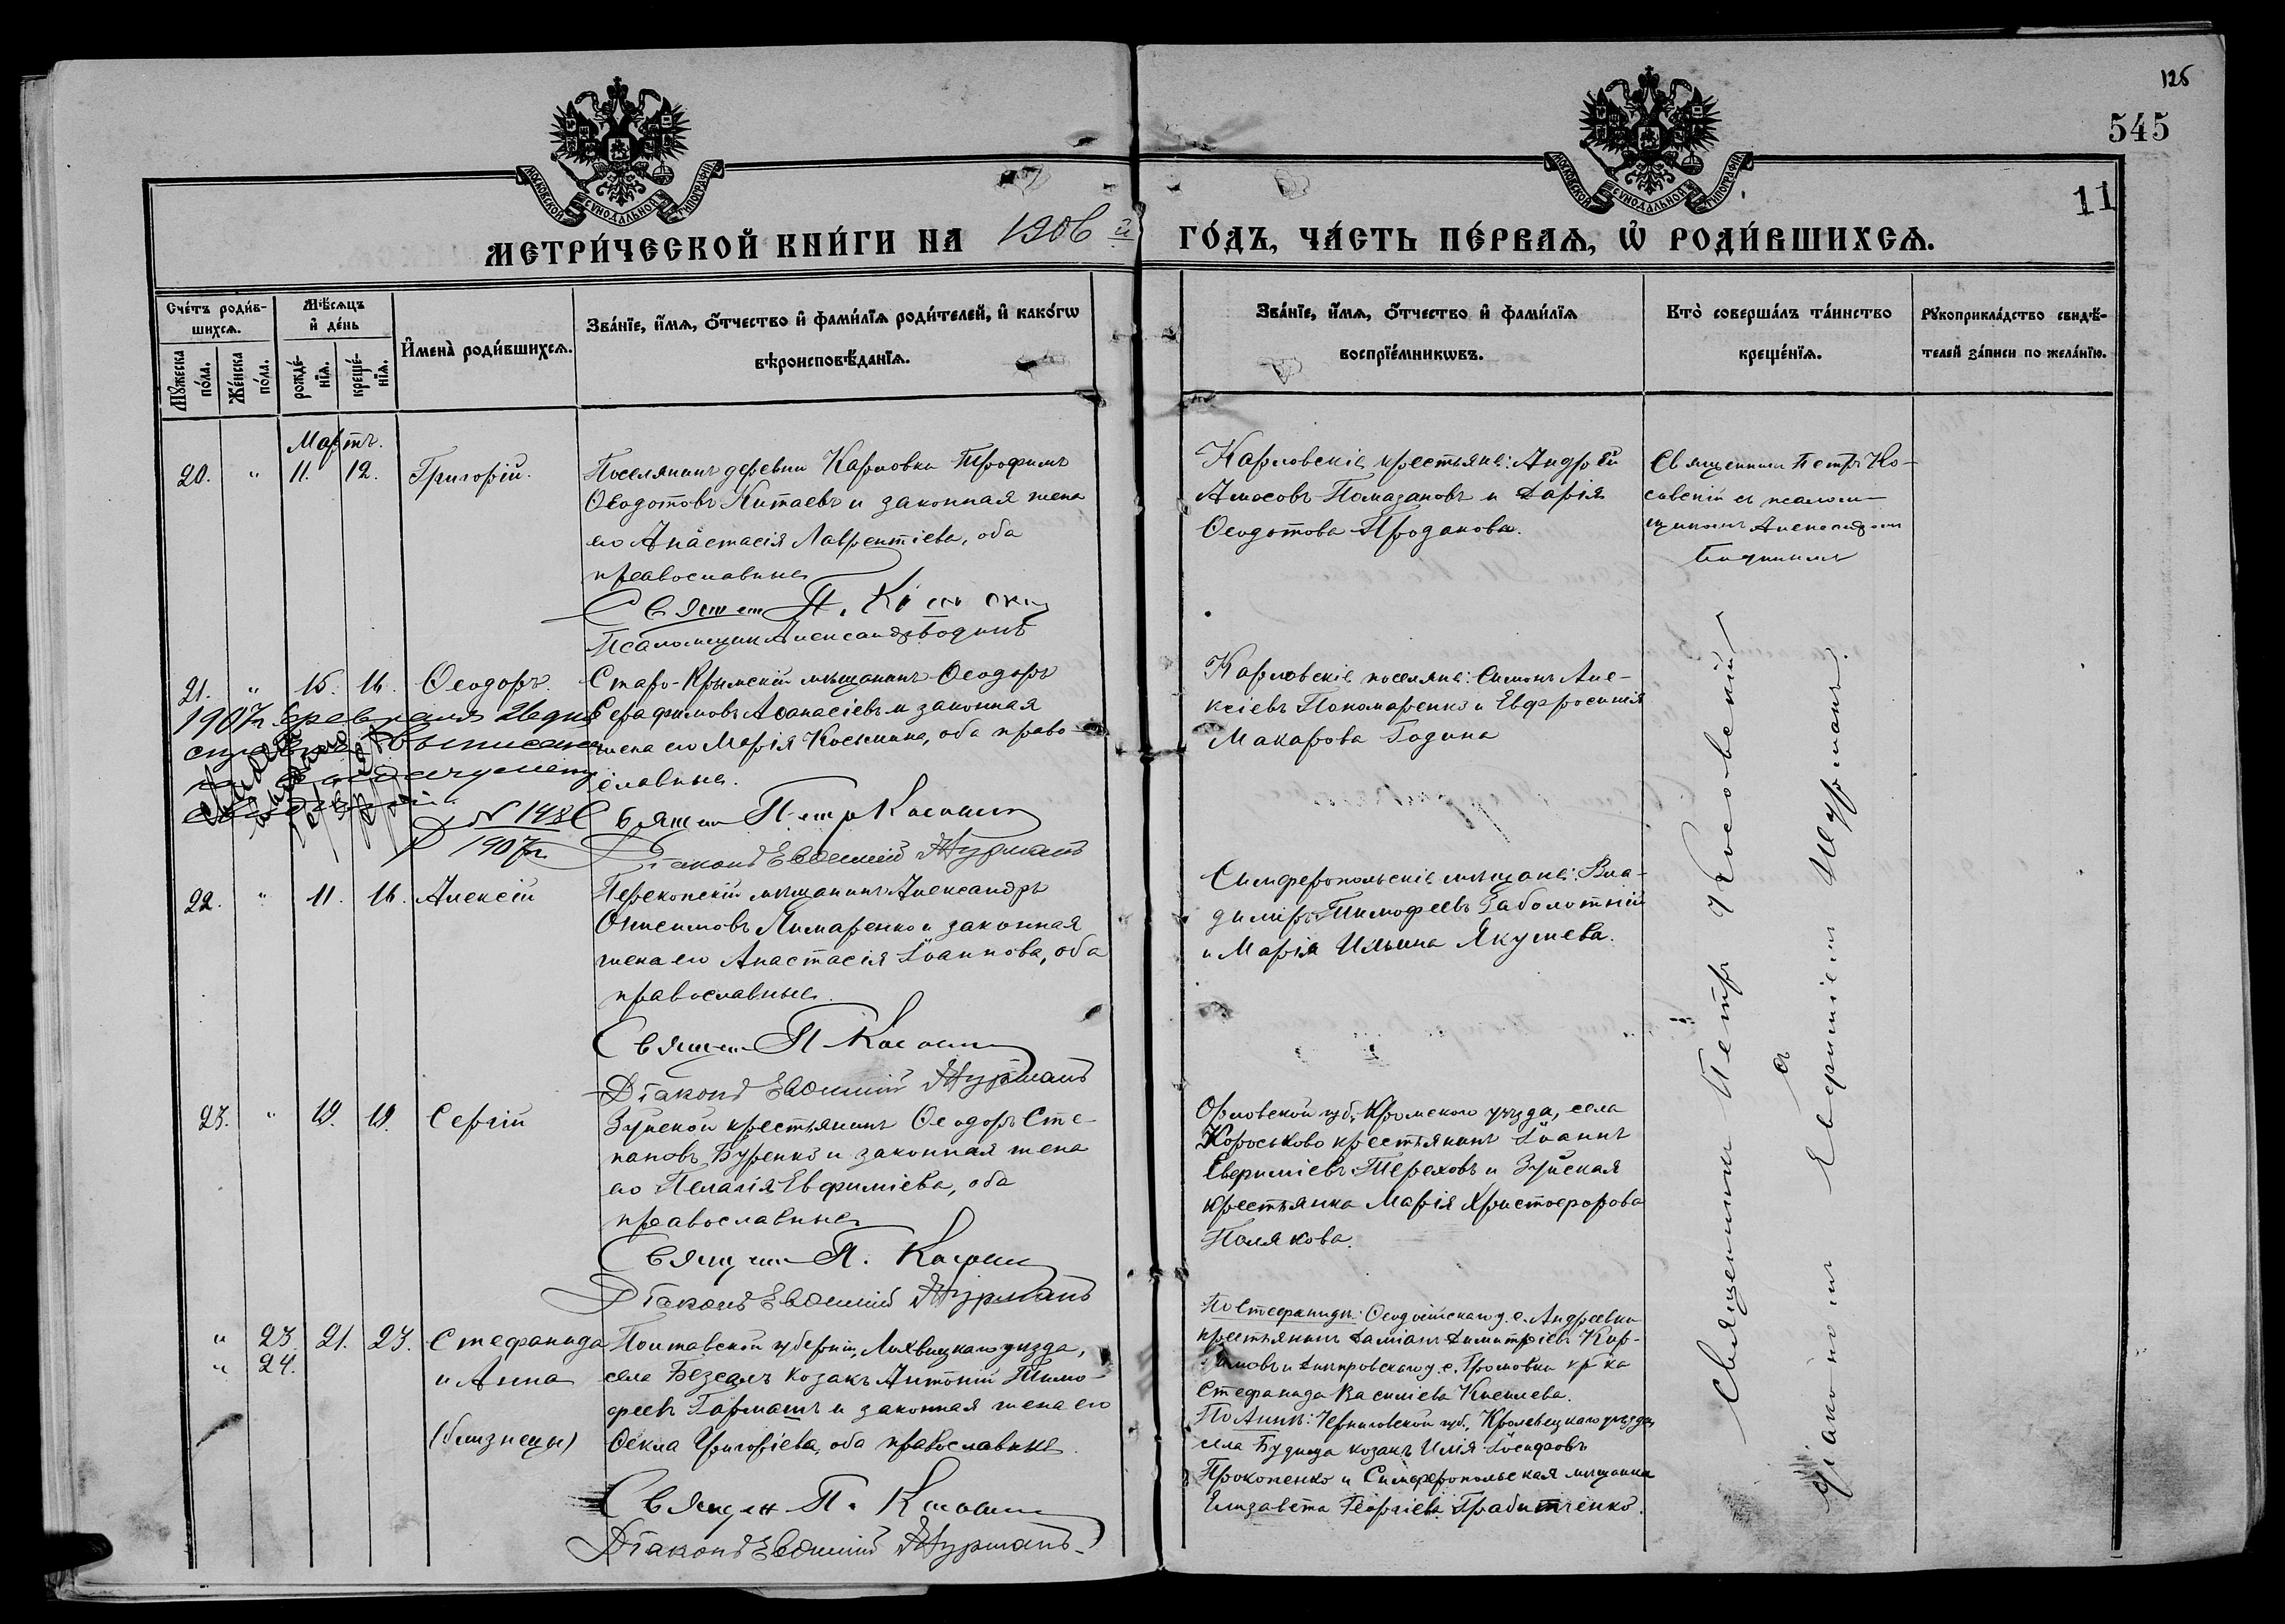 126
545
11
МОСКОВСКОЙ СѴНОДАЛЬНОЙ ТИПОГРАФІИ
МОСКОВСКОЙ СѴНОДАЛЬНОЙ ТИПОГРАФІИ
МЕТРИ́ЧЕСКОЙ КНИ́ГИ НА 1906 й ГО́ДЪ, ЧА́СТЬ ПЕ́РВАѦ, Ѡ҆ РОДИ́ВШИХСѦ.
Сче́тъ роди́в-
шихсѧ.
Мꙋ́жеска по́ла.
Же́нска по́ла.
Мѣ́сѧцъ
и҆ де́нь
рожде́-
нїѧ.
креще́-
нїѧ.
И҆мена̀ роди́вшихсѧ.
Зва́нїе, и҆́мѧ, ѻ҆́тчество и҆ фами́лїѧ роди́телей, и҆ како́гѡ
вѣроисповѣ́данїѧ.
Зва́нїе, и҆́мѧ, ѻ҆́тчество и҆ фами́лїѧ
воспрїе́мникѡвъ.
Кто̀ соверша́лъ та́инство
креще́нїѧ.
Рꙋкоприкла́дство свидѣ́-
телей за́писи по жела́нїю.
Мартъ.
20. " 11. 12. Григорій.
Поселянинъ деревни Карловки Трофимъ
Ѳеодотовъ Китаевъ и законная жена
его Анастасія Лаврентіева, оба
православные
Свящ П. Косовскій
Псаломщикъ Александръ Бодинъ
Карловскіе крестьяне: Андрей
Амосовъ Помазановъ и Дарія
Ѳеодотова Проданова.
Священникъ Петръ Ко-
совскій съ псалом-
щикомъ Александромъ
21. " 15. 16. Ѳеодоръ.
Старо-Крымскій мѣщанинъ Ѳеодоръ
Серафимовъ Аѳанасіевъ и законная
жена его Марія Косьмина, оба право-
славные.
1907 г. Февраля 26 дня
№ 148
1907 г.
Священ Петръ Косовскій
Діаконъ Евѳимій Шурманъ
Карловскіе поселяне: Симонъ Але-
ксіевъ Пономаренко и Евфросинія
Макарова Година
22. " 11. 16. Алексій
Перекопскій мѣщанинъ Александръ
Онисимовъ Лимаренко и законная
жена его Анастасія Іоаннова, оба
православные.
Священ П Косовскій
Діаконъ Евѳимій Шурманъ
Симферопольскіе мѣщане: Вла-
диміръ Тимофеевъ Заболотній
и Марія Ильина Якушева.
23. " 19. 19. Сергій
Зуйской крестьянинъ Ѳеодоръ Сте-
пановъ Буренко и законная жена
его Пелагія Евфиміева, оба
православные
Священ П. Косовскій
Діаконъ Евѳимій Шурманъ
Орловской губ., Кромскаго уѣзда, села
Короськово крестьянинъ Іоаннъ
Евфиміевъ Тереховъ и Зуйская
крестьянка Марія Христофорова
Полякова.
" 23. 21. 23. Стефанида
" 24. и Анна
(близнецы)
Полтавской губерніи, Лохвицкаго уѣзда,
села Безсалъ козакъ Антоній Тимо-
феевъ Гармашъ и законная жена его
Ѳекла Григоріева, оба православные.
Священ П. Косовскій
Діаконъ Евѳимій Шурманъ
По Стефанидѣ: Ѳеодосійскаго у. с. Андреевки
крестьянинъ Даміанъ Димитріевъ
и Днѣпровскаго у. с. Громовки кр-ка
Стефанида Василіева Киселева.
По Аннѣ: Черниговской губ., Кролевецкаго уѣзда,
села Будища козакъ Илія Іосифовъ
Прокопенко и Симферопольская мѣщанка
Елизавета Георгіева Грабитченко.
Священникъ Петръ Косовскій
съ
Діакономъ Евфиміемъ Шурманъ.